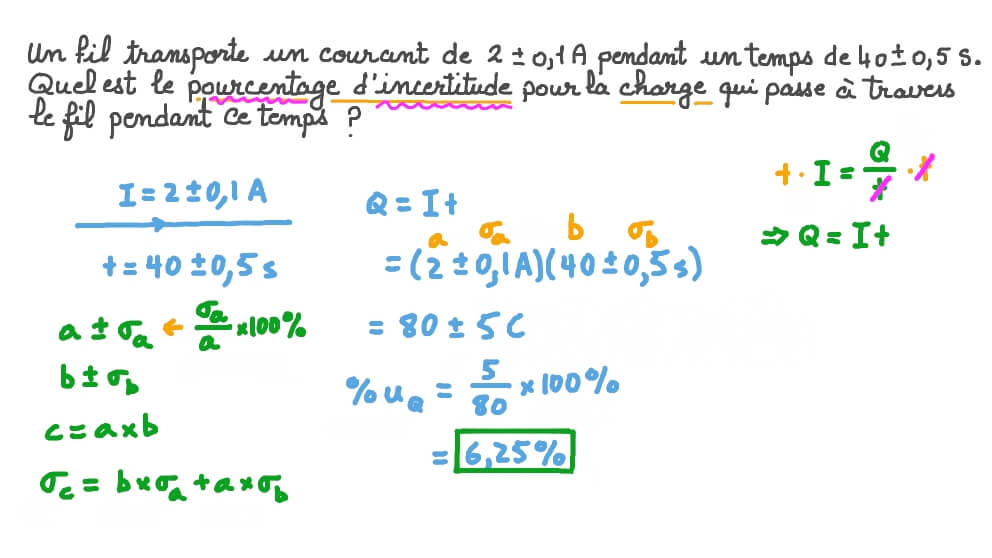 Un fil transporte un courant de 2 ± 0,1 A pendant un temps de 40 ± 0,5 s.
Quel est le pourcentage d'incertitude pour la charge qui passe à travers
le fil pendant ce temps ?
I = 2 ± 0,1 A
t = 40 ± 0,5 s
a ± σa ← σa/a × 100%
b ± σb
c = a × b
σc = b × σa + a × σb
Q = It
a σa b σb
= (2 ± 0,1 A)(40 ± 0,5 s)
= 80 ± 5 C
% uQ = 5/80 × 100%
= 6,25%
t · I = Q/t · t
⇒ Q = It